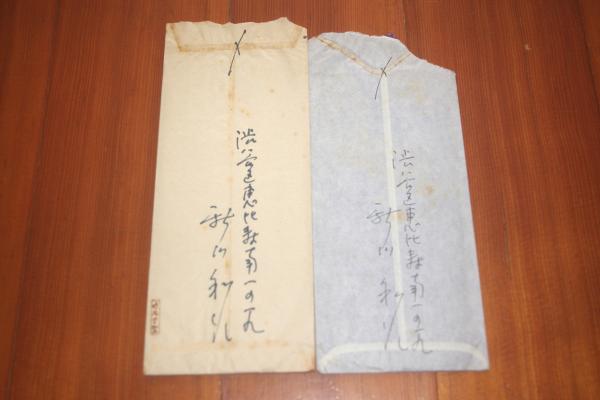 渋谷区恵比寿南一の一九
新川和江
渋谷区恵比寿南一の一九
新川和江